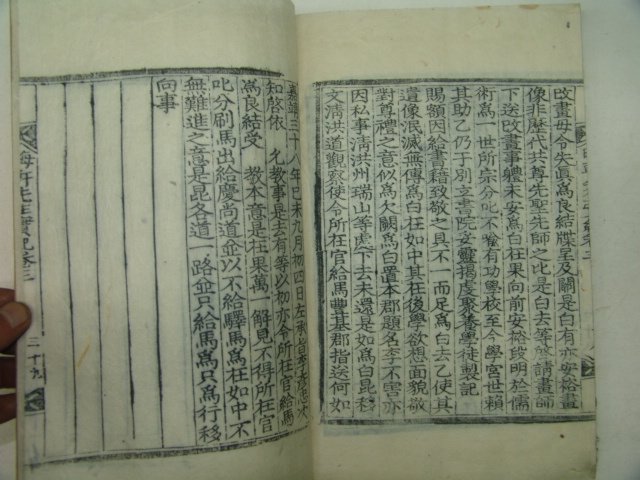 改畫毋令失眞爲良結牒呈及關是白有亦安裕畫
像非歷代共尊先聖先師之比是白去等啓請畫師
下送改畫事體未安爲白在果向前安裕段明於儒
術爲一世所宗分叱不喩有功學校至今學宮世賴
其助乙仍于別立書院文靈揭虔聚養學徒製記
賜額因給書籍致敬之具不一而足爲白去乙使其
遺像泯滅無傳爲白在如中其在後學欲想面貌敬
對尊禮之意似爲欠闕爲白置本郡題名李不害亦
因私事淸洪州瑞山等處下去未還是如爲白昆移
文淸洪道觀察使令所在官給馬豊基郡指送何如
嘉靖三十八年己未九月初四日左承旨
知啓依 允教事是去有等以初亦令所在官給馬
爲良結受 教本意是在果萬一解見不得所在官
叱分刷馬出給慶尚道並以不給驛馬爲在如中不
無難進之意是昆各道一路並只給馬爲只爲行移
向事
晦軒先生實紀卷三
二十九